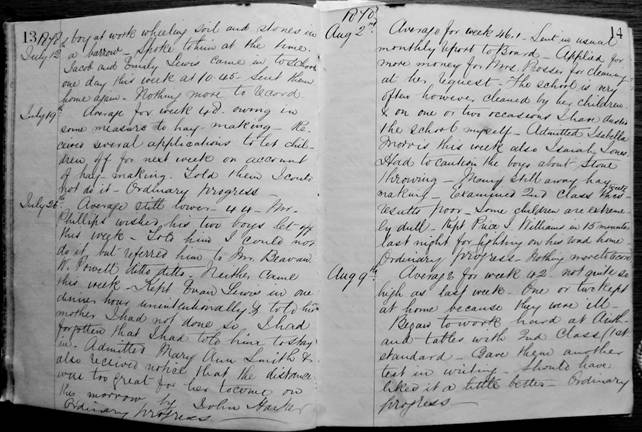 13
1878
July 12th
boy at work wheeling soil and stones in
a barrow - Spoke to him at the time.
Jacob and Emily Lewis came in to school
one day this week at 10.45 - Sent them
home again - Nothing more to record.
July 19th
Average for week 48. owing in
some measure to hay-making - Re-
ceived several applications to let chil-
dren off for next week on account
of hay-making. Told them I could
not do it - Ordinary progress -
July 26th
Average still lower - 44 - Mr.
Phillips wished his two boys let off
this week - Told him I could not
do it but referred him to Mr. Beavan
W. Powell ditto ditto - Neither came
this week - Kept Evan Lewis in one
dinner hour unintentionally & told his
mother I had not done so, I had
forgotten that I had told him to stay
in - Admitted Mary Ann Smith &
also received notice that the distance
was too great for her to come on
the morrow by John
Ordinary progress -
14
1878
Aug 2nd
Average for week 46.1 - Sent in usual
monthly report to Board - Applied for
more money for Mrs. Prosser for cleaning
at her request - The school is very
often however cleaned by her children
& on one or two occasions I have dusted
the school myself - Admitted Isabella
Morris this week also Isaiah Jones.
Had to caution the boys about Stone
Throwing - Many still away hay
making - Examined 2nd Class
results poor - Some children are extreme-
ly dull - Kept Price J. Williams in 15 minutes
last night for fighting on his road home.
Ordinary progress - Nothing more to record
Aug 9th
Average for week 42 - not quite so
high as last week - One or two kept
at home because they were ill -
Began to work hard at Arith-
and tables with 2nd Class/1st
standard - Gave them another
test in writing - Should have
liked it a little better - Ordinary
progress -